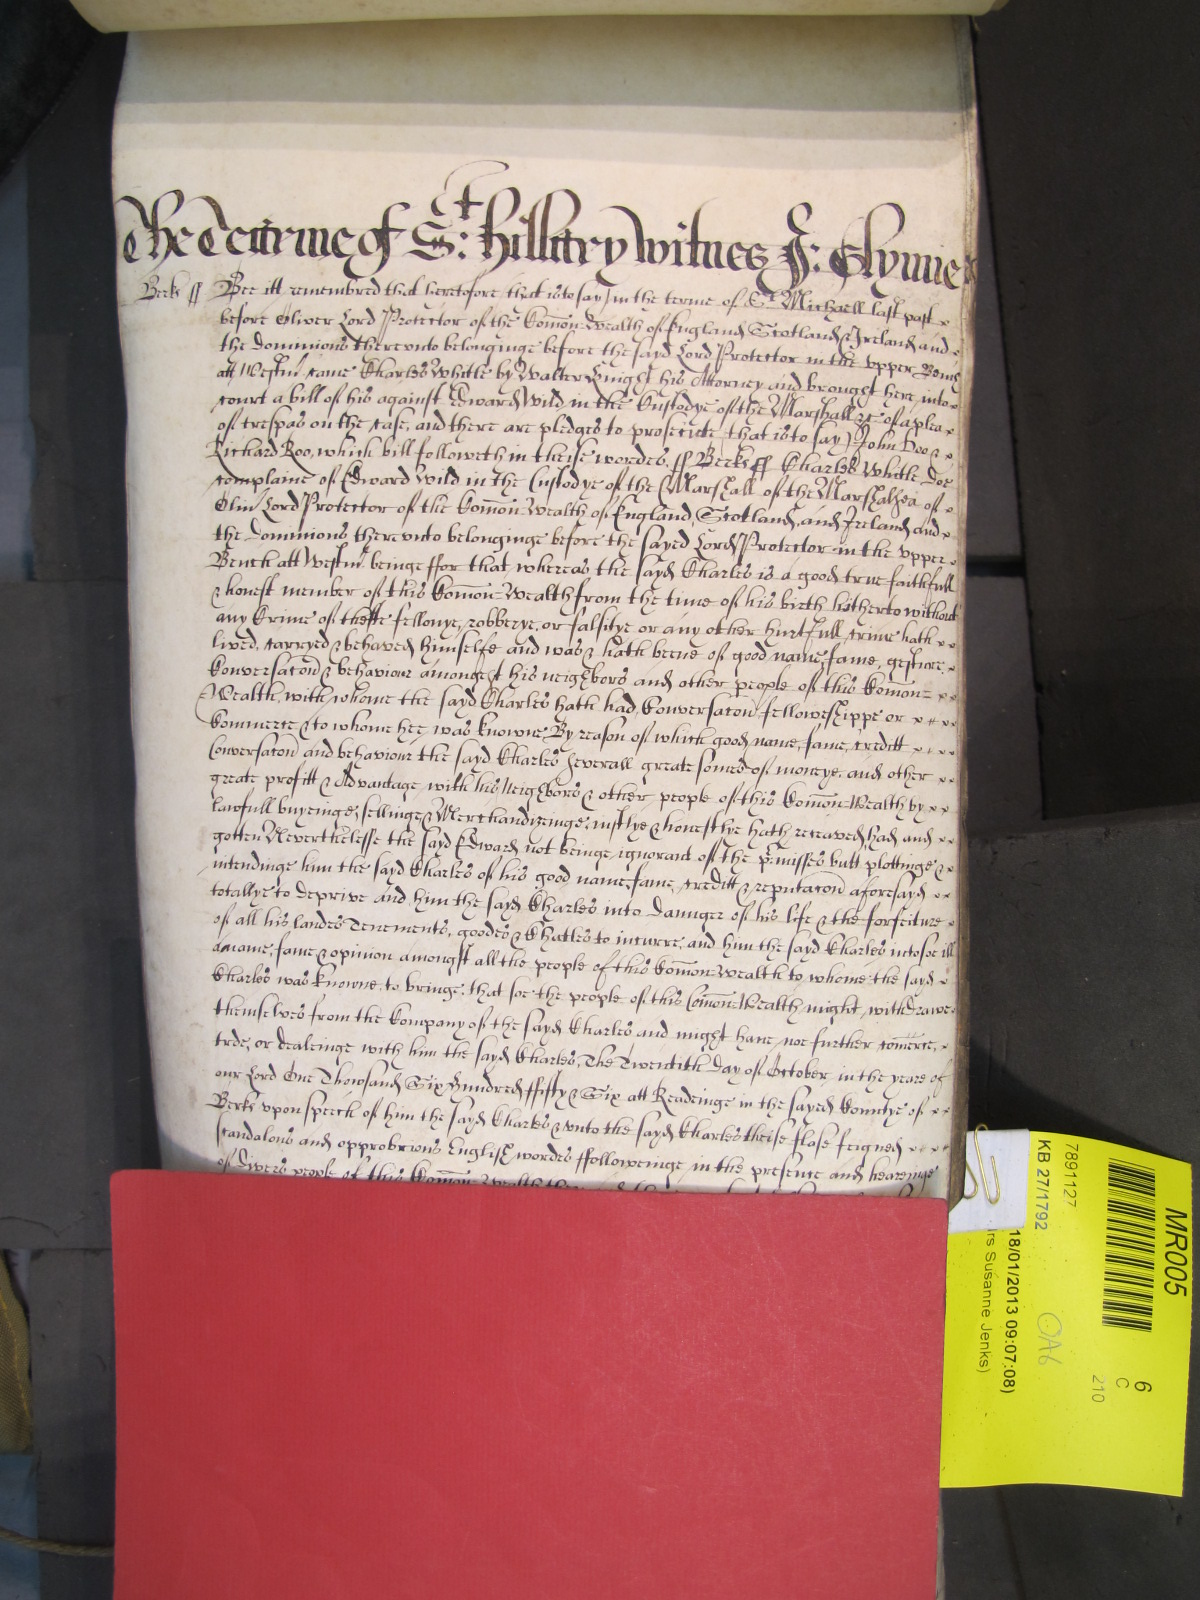 The Tearme of St: Hillary Witnes J: Glynne
Berks ss Bee itt remembred that heretofore that is to say in the terme of St. Michaell last past
before Oliver Lord Protector of the Com̄on-Wealth of England Scotland & Ireland and
the dominions therevnto belonginge before the sayd Lord Protector in the vpper Bench
att Westm̄ came Charles Whitle by Walter Knight his Attorney and brought here into
Court a bill of his against Edward Wild in the Custodye of the Marshall &c of a plea
of trespas on the case, and there are pledges to prosecute that is to say John Doo &
Richard Roo, which bill followeth in theise wordes. ss Berks ss Charles Whitle doe
complaine of Edward Wild in the Custodye of the Marshall of the Marshalzea of
Oliv̄ Lord Protector of the Com̄on-Wealth of England, Scotland, and Ireland and
the dominions therevnto belonginge before the sayed Lord Protector in the vpper
Bench att Westm̄ beinge ffor that whereas the sayd Charles is a good true faithfull
& honest member of this Com̄on-Wealth from the time of his birth hitherto without
any Crime of thefte fellonye, robberye, or falsitye or any other hurtfull crime hath
lived, carryed & behaved himselfe and was & hath beene of good name, fame, gesture,
Conversac̄on & behaviour amongest his neighbors and other people of this Com̄on-
Wealth, with whome the sayd Charles hath had, Conversac̄on felloweshippe or
Commerce & to whome hee was knowne By reason of which good name, fame, creditt
Conversac̄on and behaviour the sayd Charles severall greate somes of moneye, and other
greate profitt & Advantage, with his Neighbors & other people of this Com̄on-Wealth by
lawfull buyeinge, sellinge & Merchandizeinge, justlye & honestlye hath receaved, had and
gotten Neverthelesse the sayd Edward not beinge ignorant of the p̄misses butt plottinge &
intendinge him the sayd Charles of his good name, fame, creditt & reputac̄on aforesayd
totallye to deprive and him the sayd Charles into daunger of his life & the forfeiture
of all his landes Tenements, goodes & Chattles to incurre, and him the sayd Charles into soe ill
a name, fame & opinion amongst all the people of this Com̄on-wealth to whome the sayd
Charles was knowne, to bringe, that soe the people of this Com̄on-Wealth might withdrawe
themselves from the Company of the sayd Charles and might have noe further com̄erce,
trde, or dealeinge with him the sayd Charles, The Twentith day of October in the yeare of
our Lord One Thowsand Six hundred ffifty & Six att Readeinge in the sayed Countye of
Berks vpon speech of him the sayd Charles & vnto the sayd Charles theise flase feigned
scandalous and opprobrious English wordes ffolloweinge in the presence and heareinge
of divers people of this Com̄on-Wealth
MR005
6
C
210
7891127
KB 27/1792
OA6
18/01/2013 09:07:08)
rs Susanne Jenks)